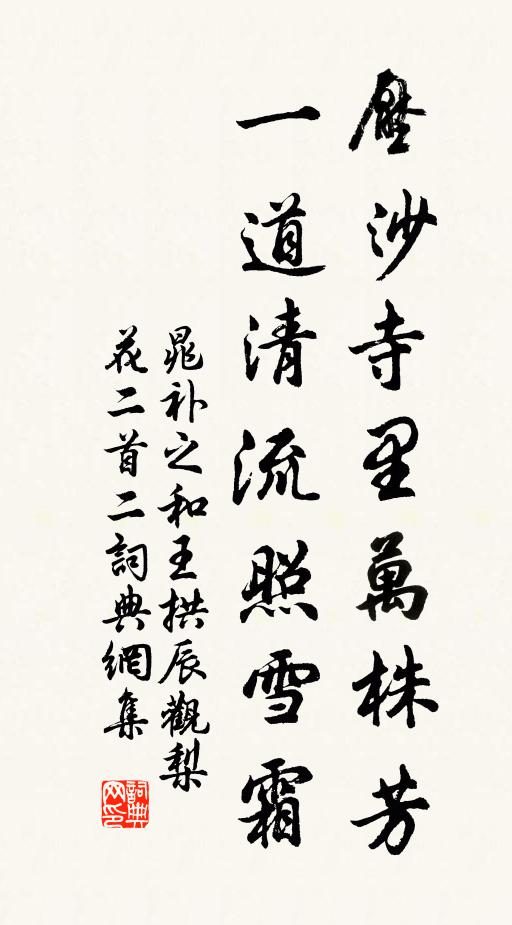 壓沙寺里萬株芳
一道清流照雪霜
晁補之和王拱辰觀梨
花二首二詞典網集
詞典
网印